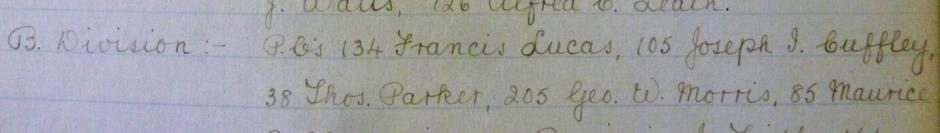 J. Watts, 126 Alfred C. Death.
B. Division :- P.C's 134 Francis Lucas, 105 Joseph I. Cuffley,
38 Thos. Parker, 205 Geo. W. Morris, 85 Maurice